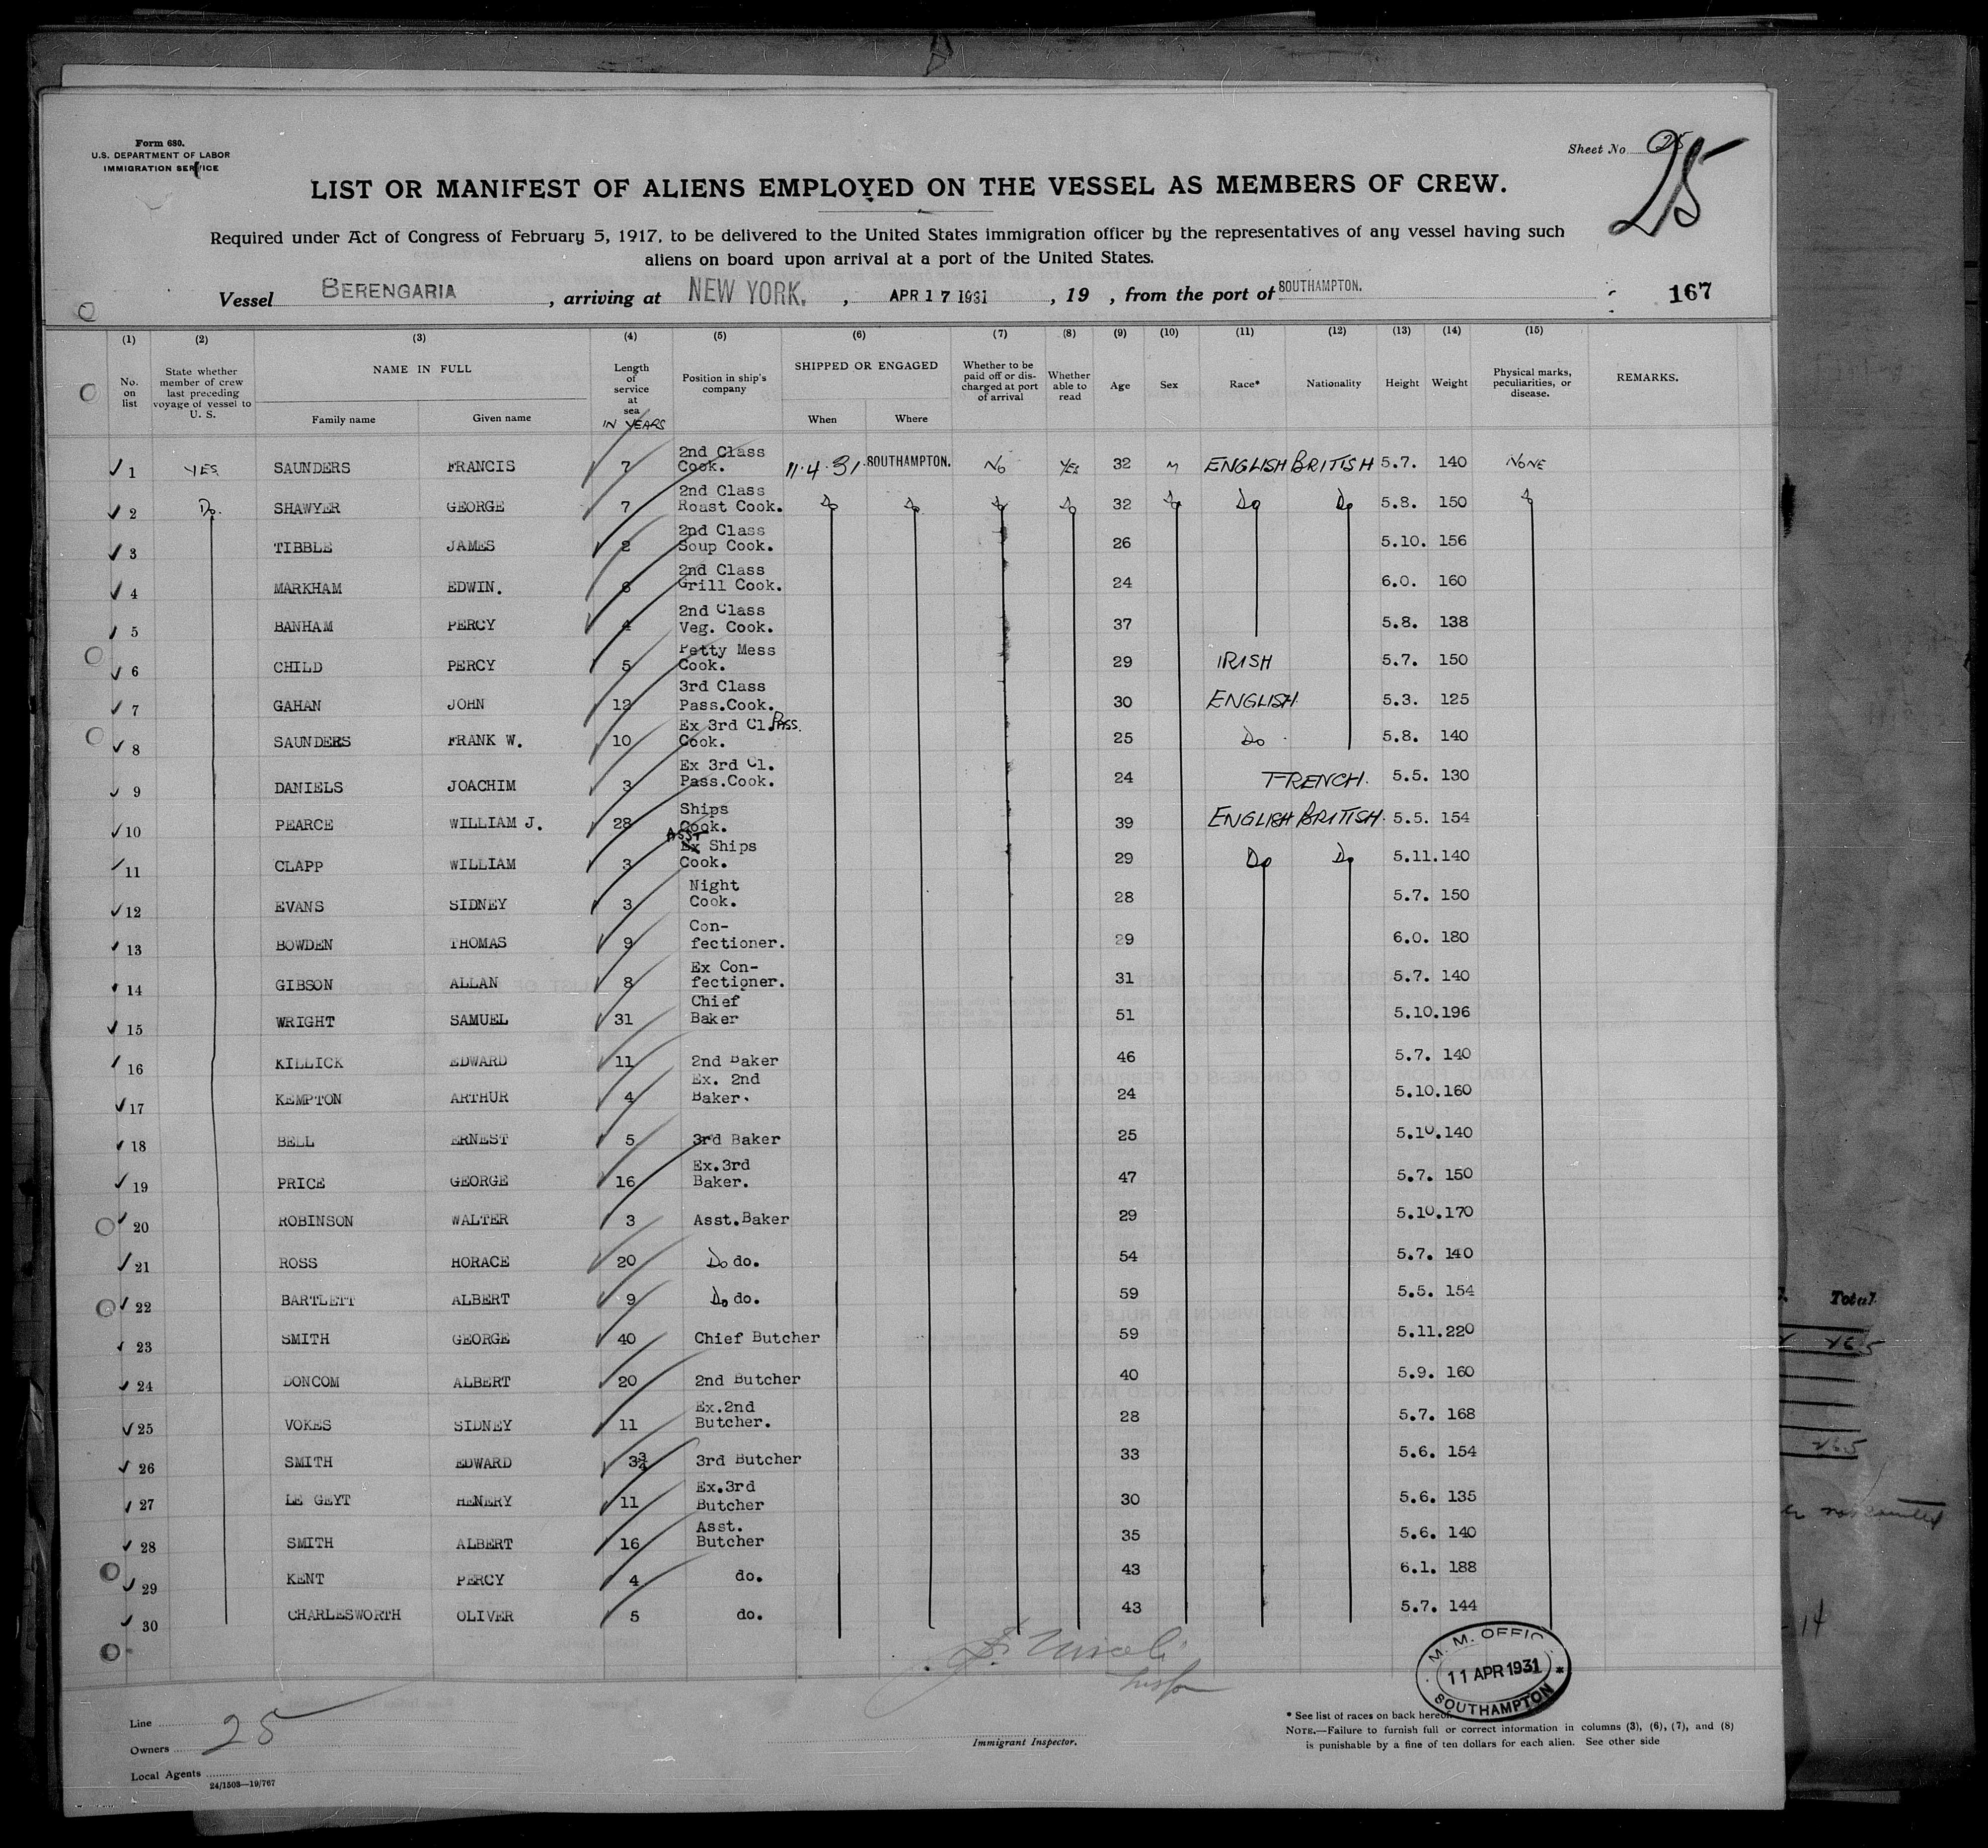 Form 680.
U.S. DEPARTMENT OF LABOR
IMMIGRATION SERVICE
Sheet No. 25
25
LIST OR MANIFEST OF ALIENS EMPLOYED ON THE VESSEL AS MEMBERS OF CREW.
Required under Act of Congress of February 5, 1917, to be delivered to the United States immigration officer by the representatives of any vessel having such
aliens on board upon arrival at a port of the United States.
Vessel BERENGARIA, arriving at NEW YORK, APR 17 1931, 19 , from the port of SOUTHAMPTON. 167
(1) (2) (3) (4) (5) (6) (7) (8) (9) (10) (11) (12) (13) (14) (15)
No. on list
State whether member of crew last preceding voyage of vessel to U. S.
NAME IN FULL
Family name Given name
Length of service at sea
IN YEARS
Position in ship's company
SHIPPED OR ENGAGED
When Where
Whether to be paid off or discharged at port of arrival
Whether able to read
Age Sex Race* Nationality Height Weight
Physical marks, peculiarities, or disease.
REMARKS.
1 YES SAUNDERS FRANCIS 7 2nd Class Cook. 11.4.31. SOUTHAMPTON. NO YES 32 M ENGLISH BRITISH 5.7. 140 NONE
2 Do. SHAWYER GEORGE 7 2nd Class Roast Cook. Do Do Do Do 32 Do Do Do 5.8. 150 Do
3 TIBBLE JAMES 2 2nd Class Soup Cook. 26 5.10. 156
4 MARKHAM EDWIN. 6 2nd Class Grill Cook. 24 6.0. 160
5 BANHAM PERCY 4 2nd Class Veg. Cook. 37 5.8. 138
6 CHILD PERCY 5 Petty Mess Cook. 29 IRISH 5.7. 150
7 GAHAN JOHN 12 3rd Class Pass.Cook. 30 ENGLISH. 5.3. 125
8 SAUNDERS FRANK W. 10 Ex 3rd Cl. PASS. Cook. 25 Do 5.8. 140
9 DANIELS JOACHIM 3 Ex 3rd Cl. Pass.Cook. 24 FRENCH. 5.5. 130
10 PEARCE WILLIAM J. 28 Ships Cook. 39 ENGLISH BRITISH. 5.5. 154
11 CLAPP WILLIAM 3 ASST Ex Ships Cook. 29 Do Do 5.11. 140
12 EVANS SIDNEY 3 Night Cook. 28 5.7. 150
13 BOWDEN THOMAS 9 Con- fectioner. 29 6.0. 180
14 GIBSON ALLAN 8 Ex Con- fectioner. 31 5.7. 140
15 WRIGHT SAMUEL 31 Chief Baker 51 5.10. 196
16 KILLICK EDWARD 11 2nd Baker 46 5.7. 140
17 KEMPTON ARTHUR 4 Ex. 2nd Baker. 24 5.10. 160
18 BELL ERNEST 5 3rd Baker 25 5.10. 140
19 PRICE GEORGE 16 Ex.3rd Baker. 47 5.7. 150
20 ROBINSON WALTER 3 Asst.Baker 29 5.10. 170
21 ROSS HORACE 20 Do do. 54 5.7. 140
22 BARTLETT ALBERT 9 Do do. 59 5.5. 154
23 SMITH GEORGE 40 Chief Butcher 59 5.11. 220
24 DONCOM ALBERT 20 2nd Butcher 40 5.9. 160
25 VOKES SIDNEY 11 Ex.2nd Butcher. 28 5.7. 168
26 SMITH EDWARD 3¾ 3rd Butcher 33 5.6. 154
27 LE GEYT HENERY 11 Ex.3rd Butcher 30 5.6. 135
28 SMITH ALBERT 16 Asst. Butcher 35 5.6. 140
29 KENT PERCY 4 do. 43 6.1. 188
30 CHARLESWORTH OLIVER 5 do. 43 5.7. 144
M. M. OFFIC
11 APR 1931
SOUTHAMPTON
Line
Owners
Local Agents
25
24/1503—19/767
Immigrant Inspector.
* See list of races on back hereof.
NOTE.—Failure to furnish full or correct information in columns (3), (6), (7), and (8)
is punishable by a fine of ten dollars for each alien. See other side
Total
265
265
14